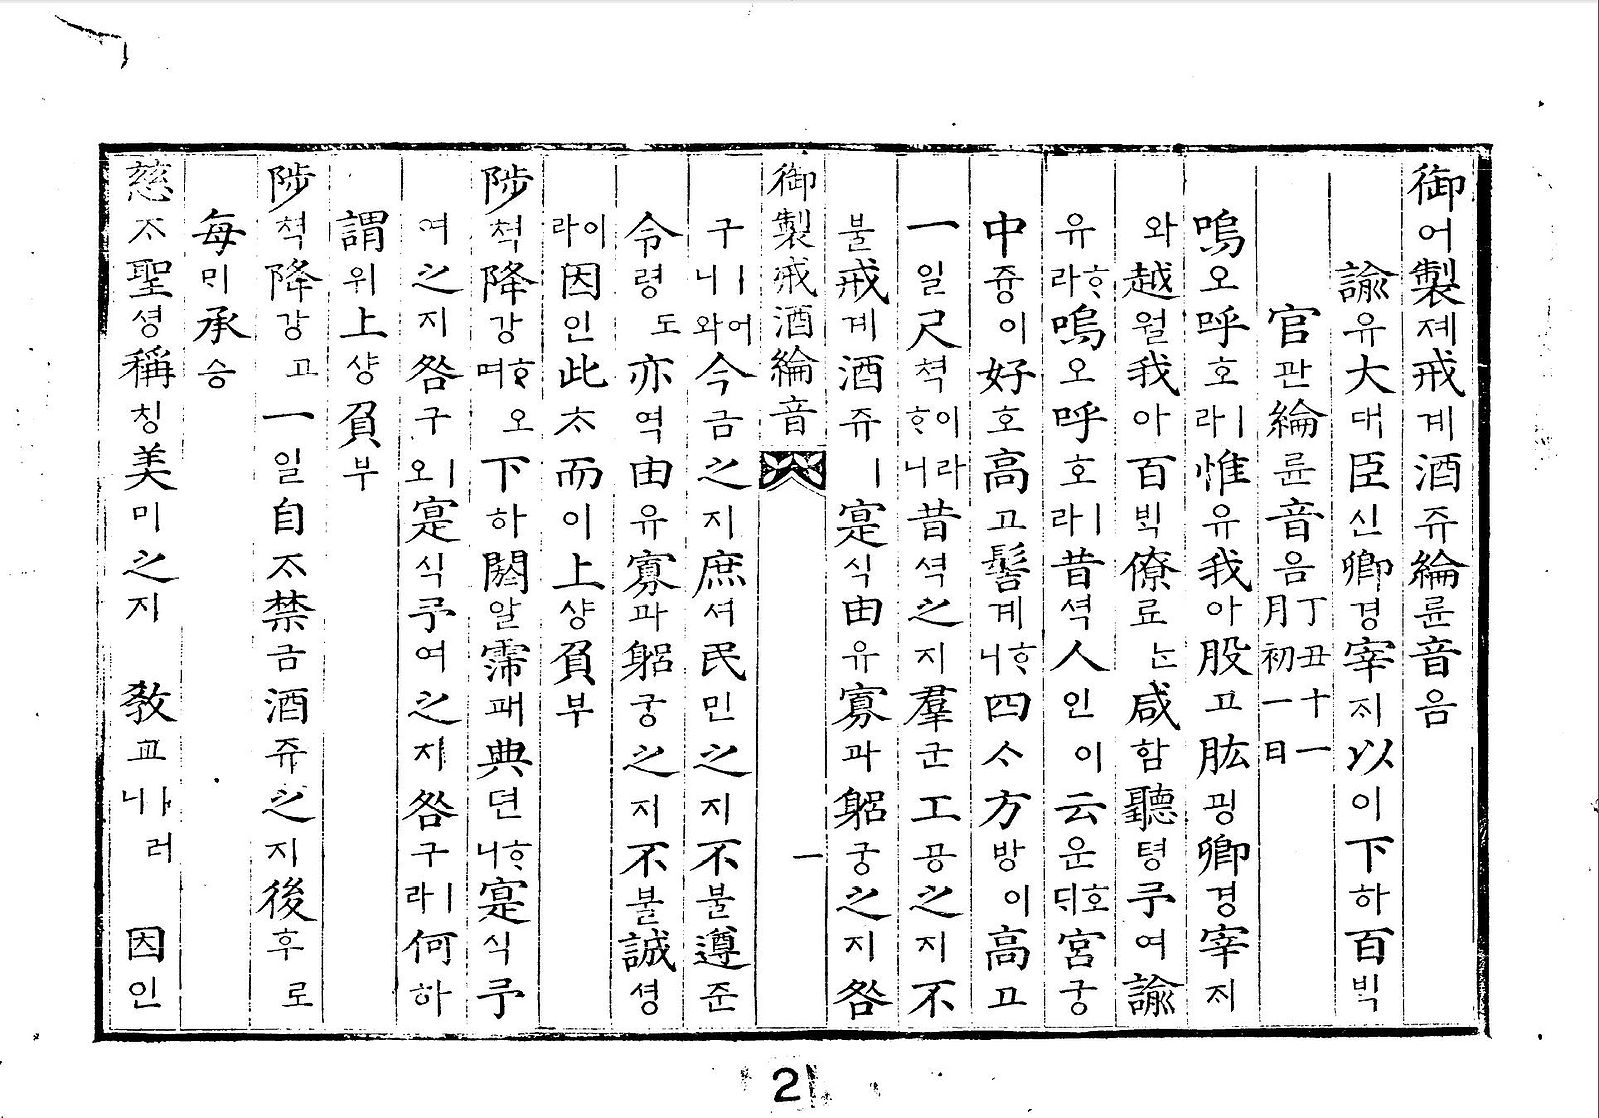 御어製졔戒계酒쥬綸륜音음
諭유大대臣신卿경宰ᄌᆡ以이下하百ᄇᆡᆨ
官관綸륜音음丁丑十一月初一日
嗚오呼호ㅣ라惟유我아股고肱굉卿경宰ᄌᆡ
와越월我아百ᄇᆡᆨ僚료ᄂᆞᆫ咸함聽텽予여諭
유ᄒᆞ라嗚오呼호ㅣ라昔셕人인이云운호ᄃᆡ宮궁
中즁이好호高고髻계ᄒᆞ니四ᄉᆞ方방이高고
一일尺쳑이라ᄒᆞ니昔셕之지羣군工공之지不
불戒계酒쥬ㅣ寔식由유寡과躬궁之지咎
御製戒酒綸音 一
구ㅣ어니와今금之지庶셔民민之지不불遵준
令령도亦역由유寡과躬궁之지不불誠셩
이라因인此ᄎᆞ而이上샹負부
陟쳑降강ᄒᆞ며오下하閼알霈패典뎐ᄒᆞ니寔식予
여之지咎구ㅣ오寔식予여之지咎구ㅣ라何하
謂위上샹負부
陟쳑降강고一일自ᄌᆞ禁금酒쥬之지後후로
每ᄆᆡ承승
慈ᄌᆞ聖셩稱칭美미之지 敎교 因인
2